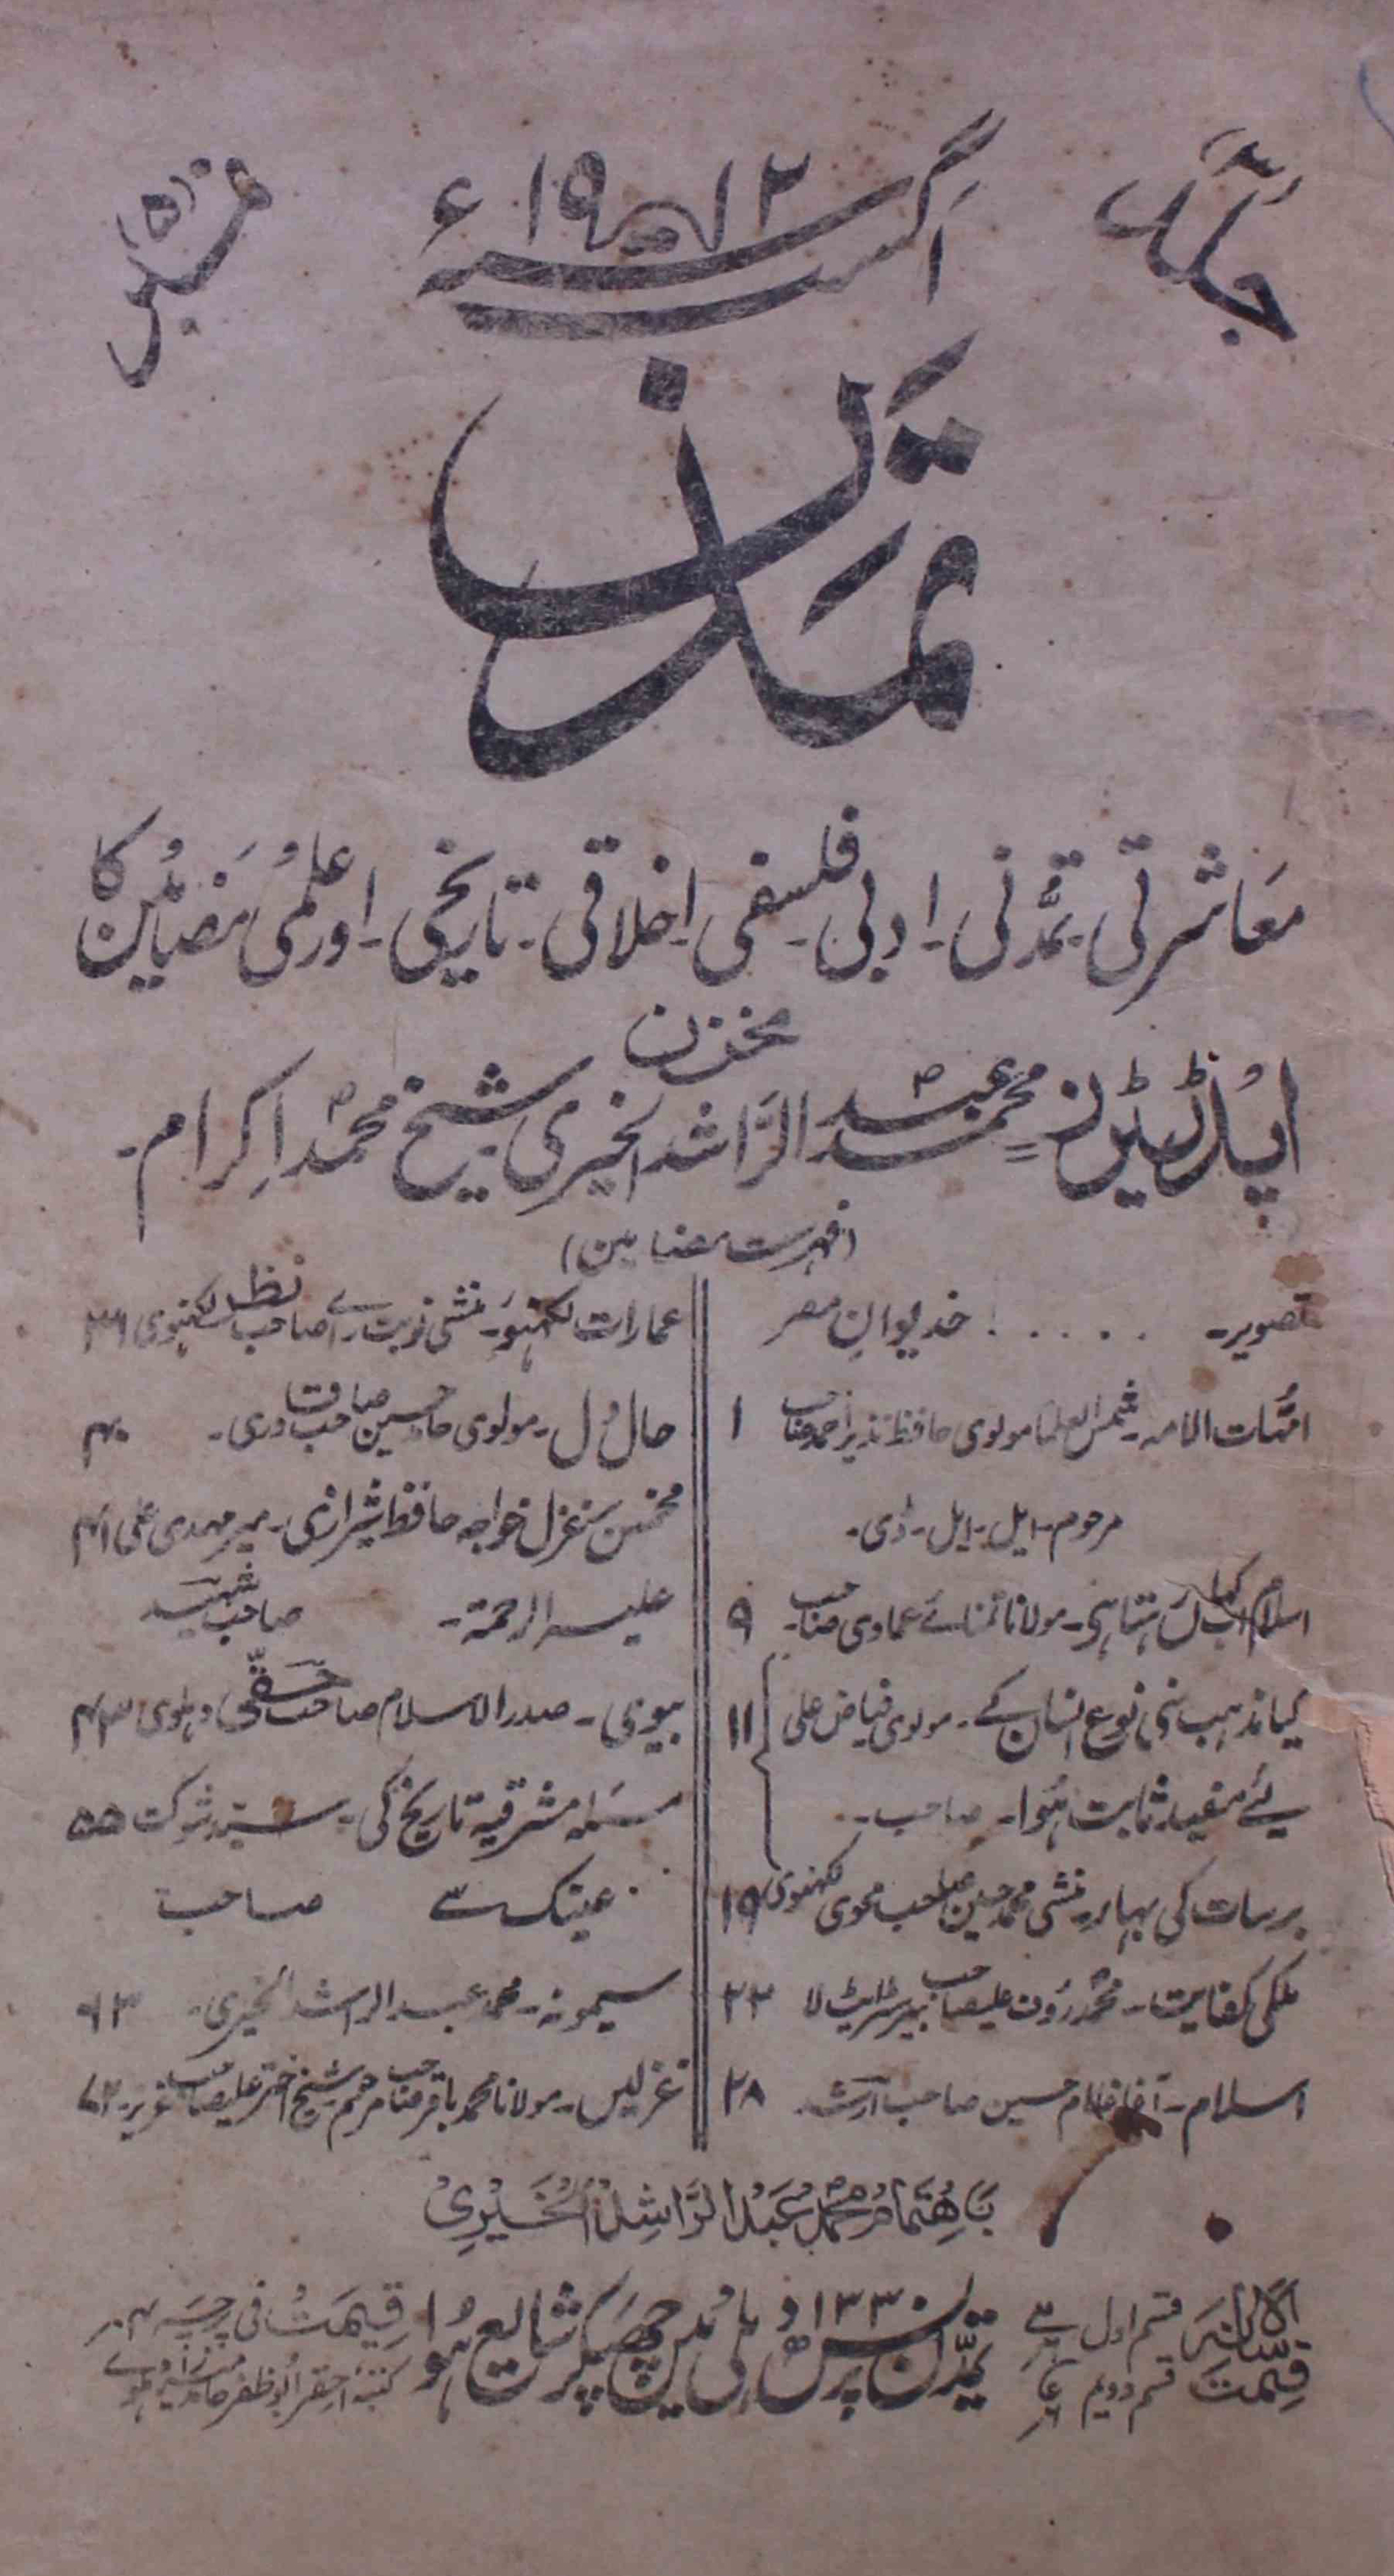 جلد ۳
اگست سنہ ۱۹۱۲ء
نمبر (۵)
تمدن
معاشرتی۔ تمدنی۔ ادبی۔ فلسفی۔ اخلاقی۔ تاریخی۔ اور علمی مضامین کا
مخزن
ایڈیٹرز محمد عبد الراشد الخیری شیخ محمد اکرام۔
(فہرست مضامین)
تصویر۔ . . . . . خدیوانِ مصر
امہات الامہ۔ شمس العلما مولوی حافظ نذیر احمد صاحب ۱
مرحوم۔ ایل۔ ایل۔ ڈی۔
اسلام مولانا تمنائے عمادی صاحب ۹
کیا مذہب بنی نوع انسان کے۔ مولوی فیاض علی ۱۱
لئے مفید ثابت ہوا۔ صاحب۔
برسات کی بہار۔ منشی محمد حسین صاحب محوی لکھنوی ۱۹
ملکی کفایت۔ محمد رؤف علیصاحب بیرسٹرایٹ لا ۲۲
اسلام۔ آغا غلام حسین صاحب ارشد ۲۸
عمارات لکھنؤ۔ منشی نوبت رائے صاحب نظر لکھنوی ۳۶
حال دل۔ مولوی حامد حسین صاحب قادری۔ ۴۰
مخمس برغزل خواجہ حافظ شیرازی۔ میر مہدی علی ۴۱
علیہ الرحمۃ۔ صاحب شہید
بیوی۔ صدر الاسلام صاحب حقی دہلوی ۴۳
مسئلہ مشرقیہ تاریخ کی۔ سید شوکت ۵۵
عینک سے صاحب
سیمونہ۔ محمد عبد الراشد الخیری۔ ۶۳
غزلیں۔ مولانا محمد باقر صاحب مرحوم شیخ اختر علیصاحب عزیز۔ ۷۲
باہتمام محمد عبد الراشد الخیری
قیمت سالانہ قسم اول
قسم دویم
تمدن پریس دہلی میں چھپکر شایع ہوا
قیمت فی پرچہ ۴؍